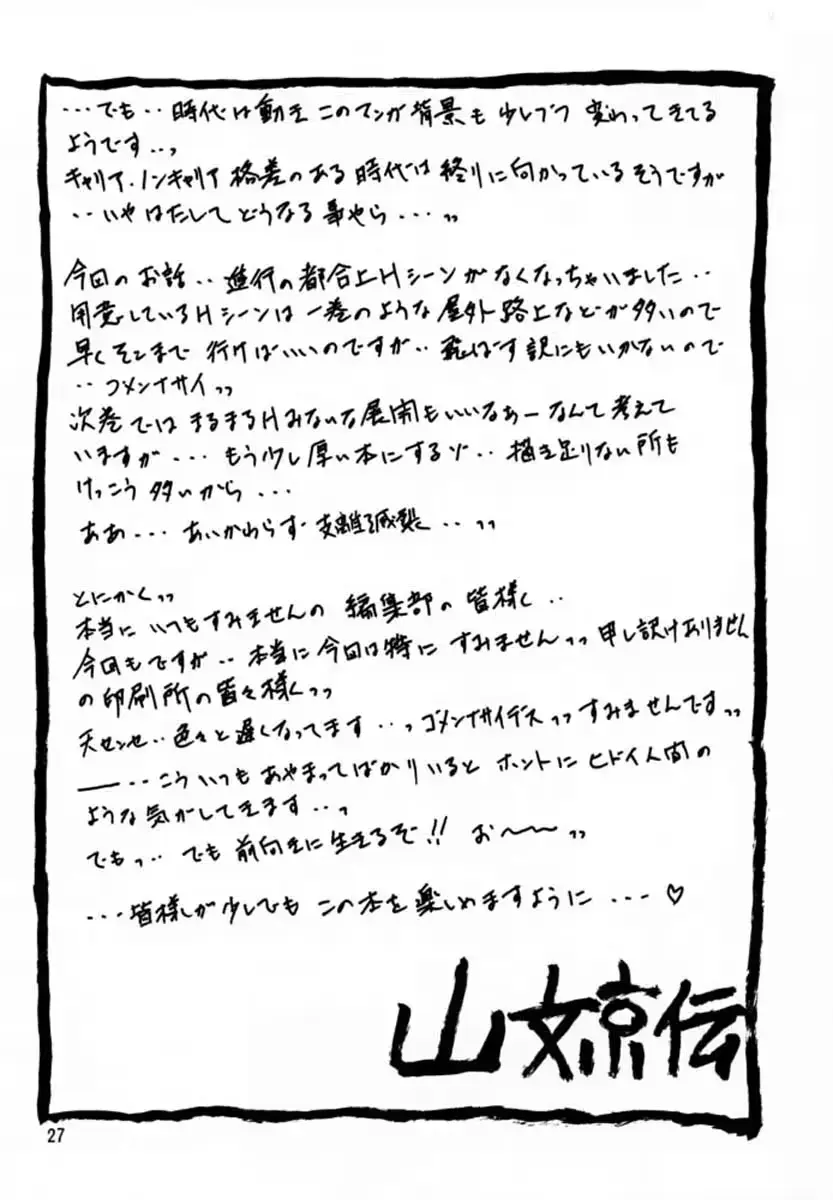 ・・・でも・・時代は動き このマンガ背景も少しづつ 変わってきてる
ようです・・っ
キャリア・ノンキャリア格差のある時代は終りに向かっているそうですが
・・いやはたしてどうなる事やら・・・〃
今回のお話・・進行の都合上Hシーンがなくなっちゃいました・・
用意しているHシーンは一巻のような屋外路上などが多いので
早くそこまで行ければいいのですが・・飛ばす訳にもいかないので
・・ゴメンナサイ〃
次巻ではまるまるHみたいな展開もいいなぁーなんて考えて
いますが・・・もう少し厚い本にするゾ・・描き足りない所も
けっこう多いから・・・
ああ・・・あいかわらず支離滅裂・・〃
とにかく〃
本当にいつもすみませんの 編集部の皆様く・・
今回もですが・・本当に今回は特にすみません〃申し訳けありません
の印刷所の皆々様く〃
天センセ・・色々と遅くなってます・・っゴメンナサイデス〃すみませんです〃
――・・こういつもあやまってばかりいると ホントに ヒドイ人間の
ような気がしてきます・・っ
でもっ・・でも前向きに生きるぞ!! お〜〜〃
・・・皆様しが少しでも この本を楽しめますように・・・♡
山文京伝
27